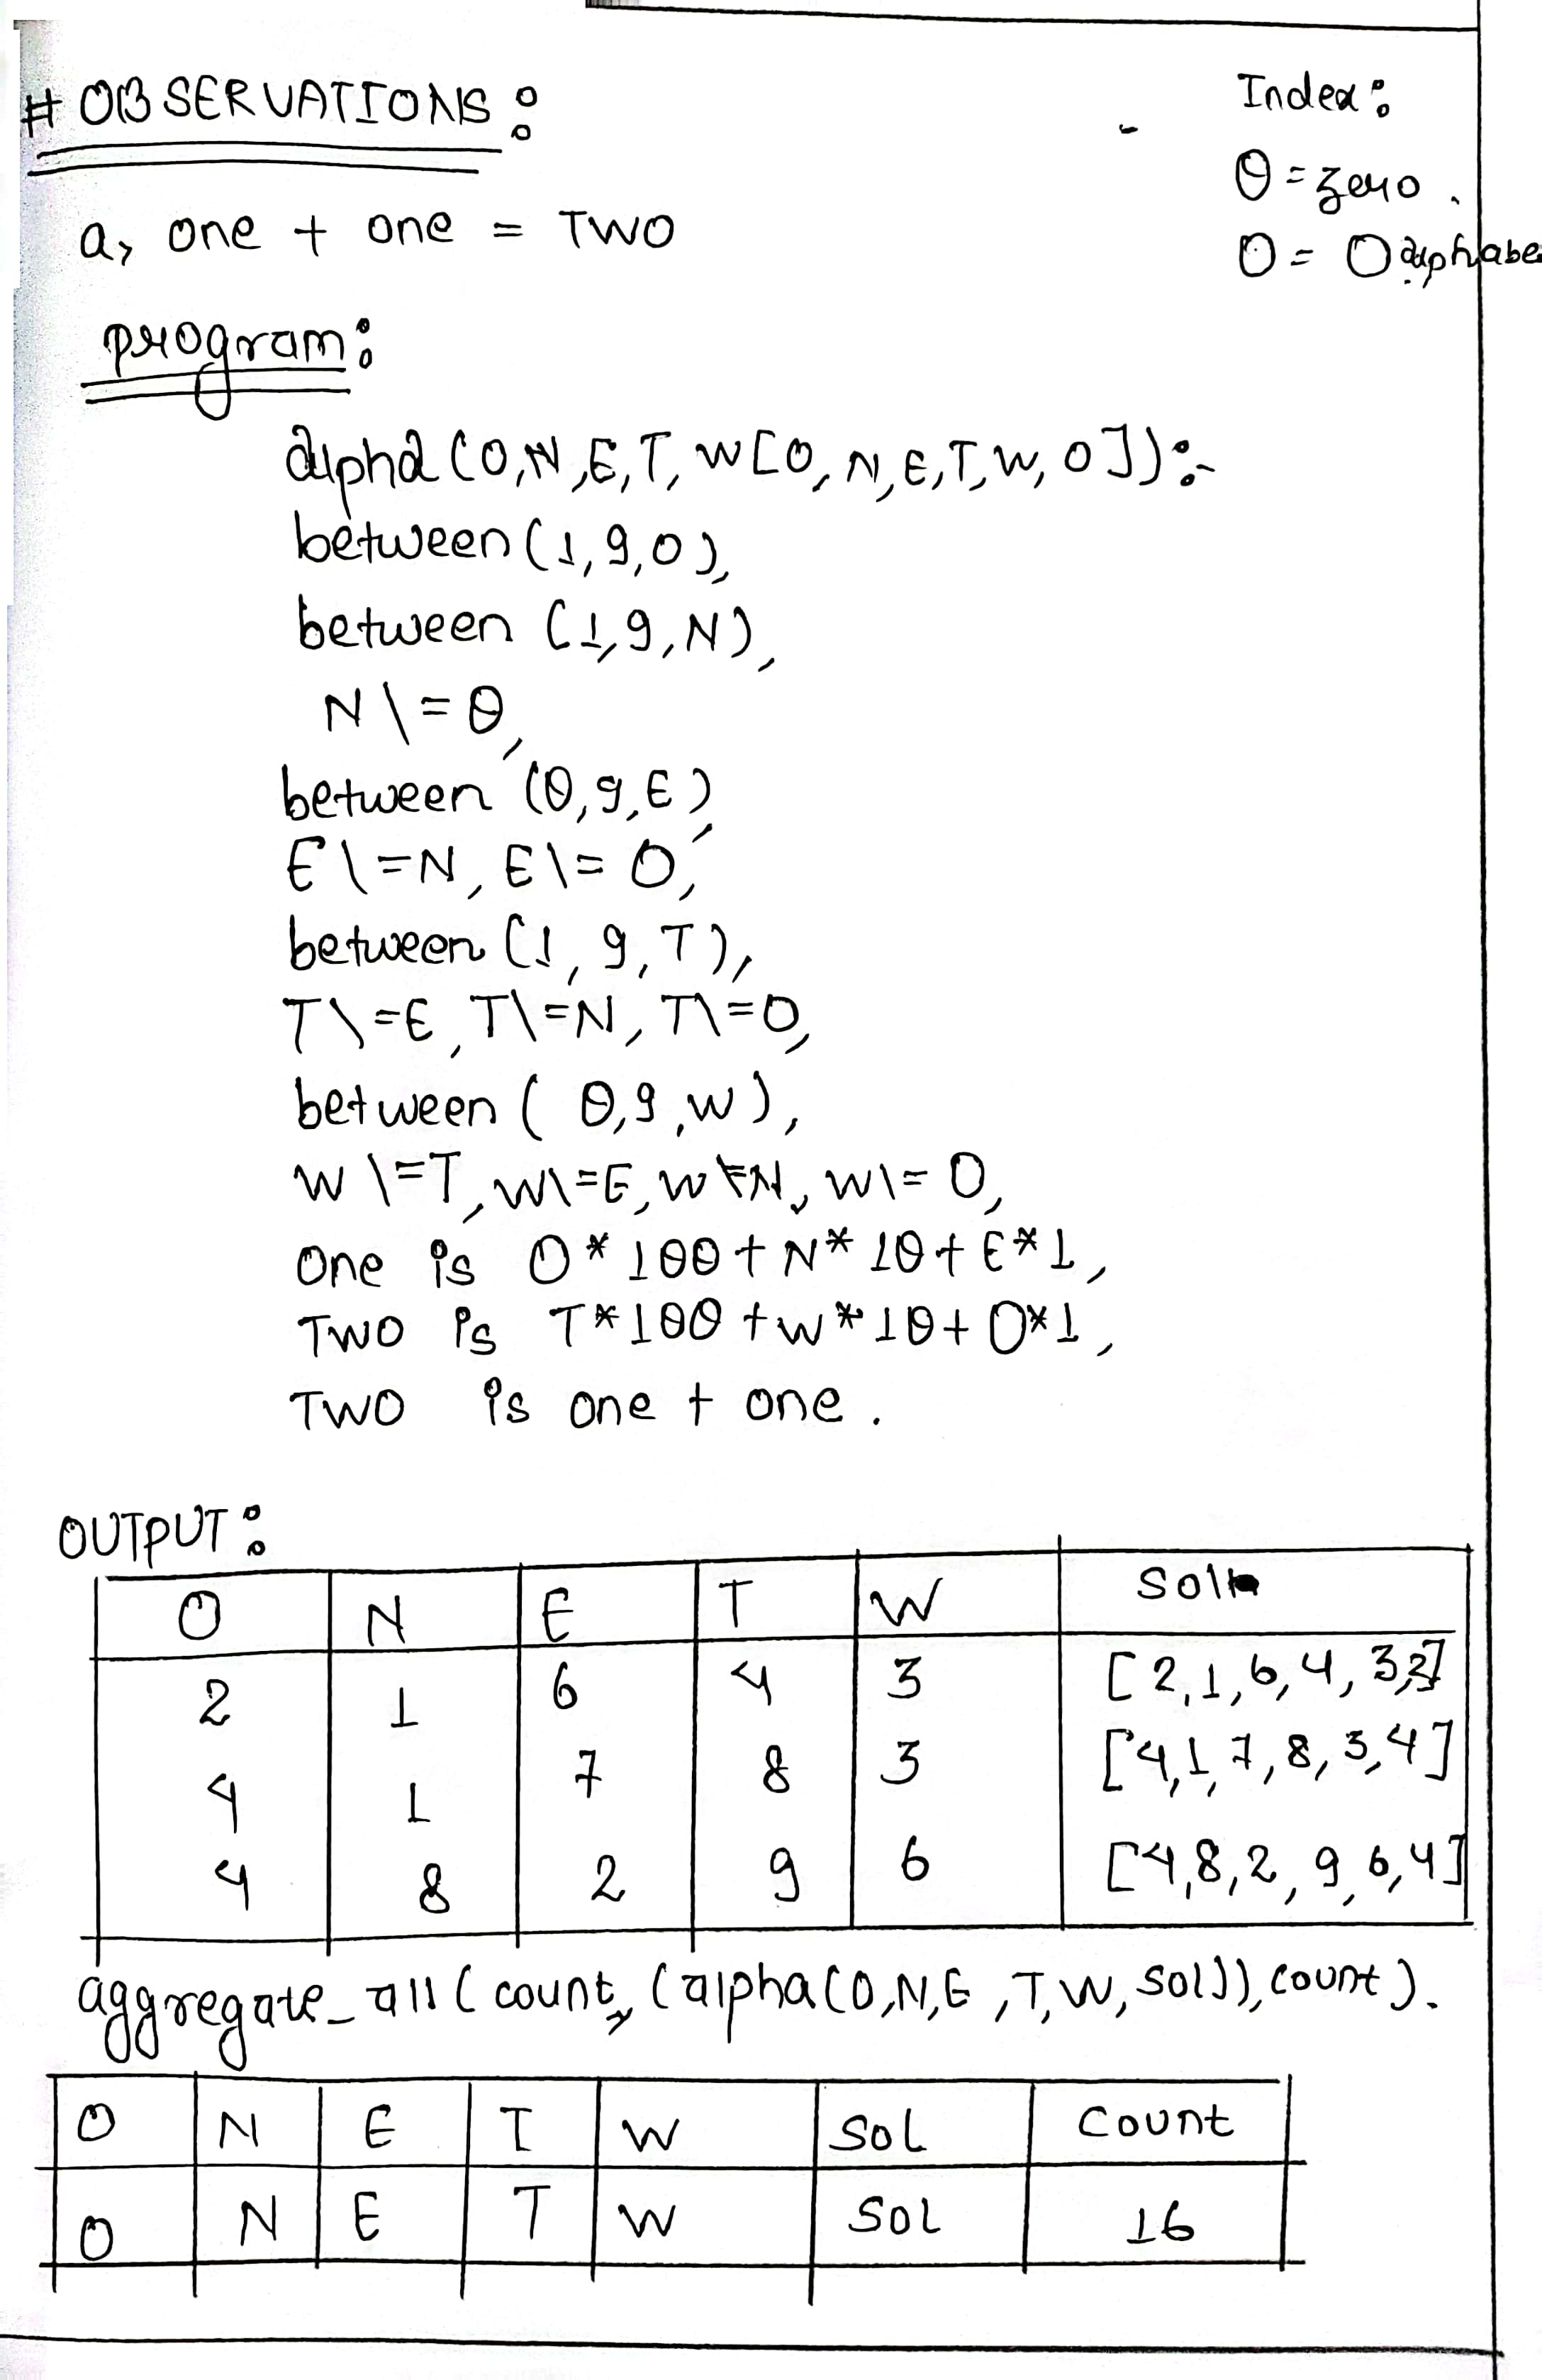 # OBSERVATIONS :
Index :
θ = zero .
O = O alphabe
a, one + one = TWO
program :
alpha (O,N,E,T, W[O, N,E,T,W,O]):-
between (1,9,O),
between (1,9,N),
N\=θ,
between (θ,9,E),
E\=N, E\= O,
between (1,9,T),
T\=E, T\=N, T\=O,
between ( θ,9,W),
W \=T, W\=E, W\=N, W\= O,
One is O * 1θθ + N* 1θ + E*1,
TWO is T*1θθ +W*1θ+ O*1,
TWO is one + one .
OUTPUT :
O N E T W Soln
2 1 6 4 3 [2,1,6,4,3,2]
4 1 7 8 3 [4,1,7,8,3,4]
4 8 2 9 6 [4,8,2,9,6,4]
aggregate_all (count, (alpha(O,N,E,T,W,sol)), count).
O N E T W Sol Count
O N E T W Sol 16